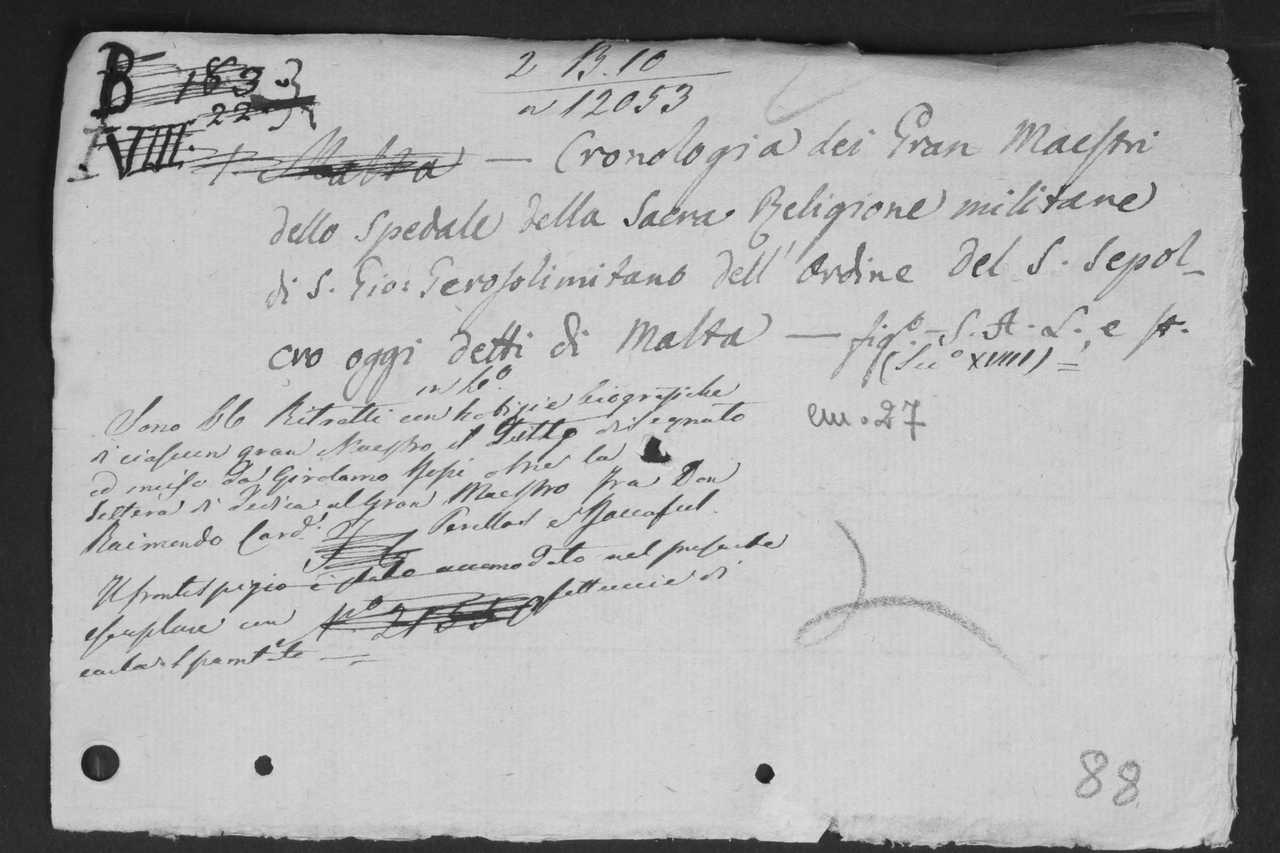 B 183
2 B. 10
22
a 12053
VIII.
Malta — Cronologia dei Gran Maestri
dello Spedale della Sacra Religione militare
di S. Gio: Gerosolimitano dell'Ordine del S. Sepol-
cro oggi detti di Malta — fig.o - S. A. L., e st.
(Sec.o XVIII) =
in 4.o
Sono 66 Ritratti con notizie biografiche
di ciascun gran Maestro il Tutto disegnato
em. 27
ed inciso da Girolamo oltre la
lettera di dedica al Gran Maestro Fra Don
Raimondo Card. Perellos e Roccaful.
Il frontespizio è stato accomodato nel presente
esemplare con fettuccie di
carta
88